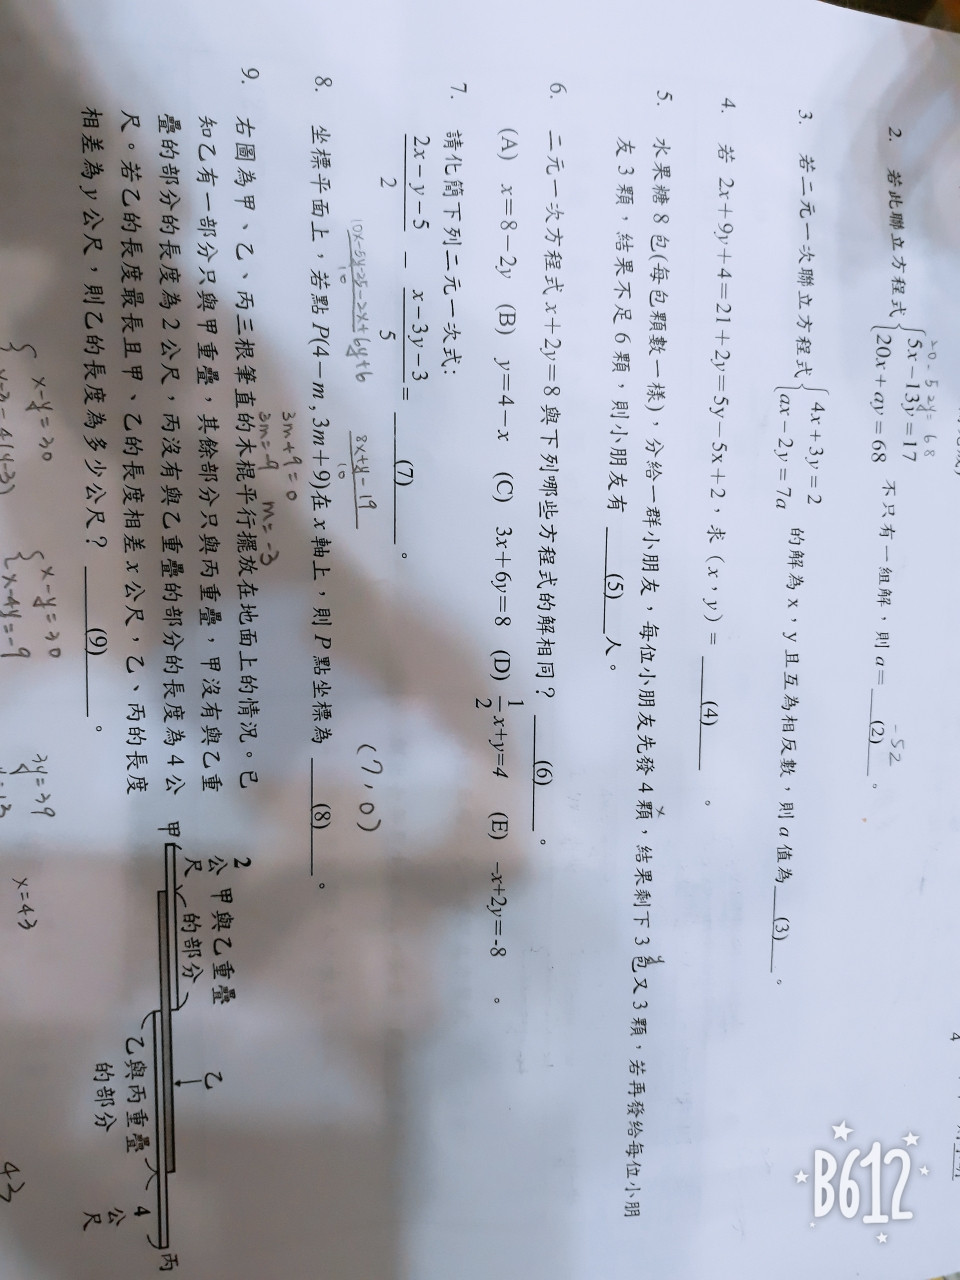 20-52y=68
2. 若此聯立方程式{5x-13y=17
20x+ay=68 不只有一組解，則 a= (2) 。
-52
3. 若二元一次聯立方程式{4x+3y=2
ax-2y=7a 的解為 x，y 且互為相反數，則 a 值為 (3) 。
4. 若 2x+9y+4=21+2y=5y-5x+2，求（x，y）= (4) 。
5. 水果糖 8 包(每包顆數一樣)，分給一群小朋友，每位小朋友先發 4 顆，結果剩下 3 包又 3 顆，若再發給每位小朋
友 3 顆，結果不足 6 顆，則小朋友有 (5) 人。
6. 二元一次方程式 x+2y=8 與下列哪些方程式的解相同？ (6) 。
(A) x=8-2y (B) y=4-x (C) 3x+6y=8 (D) 1/2x+y=4 (E) -x+2y=-8 。
7. 請化簡下列二元一次式：
(2x-y-5)/2 - (x-3y-3)/5 = (7) 。
(10x-5y-25-2x+6y+6)/10 (8x+y-19)/10
8. 坐標平面上，若點 P(4-m , 3m+9)在 x 軸上，則 P 點坐標為 (8) 。
(7,0)
3m+9=0
3m=-9 m=-3
9. 右圖為甲、乙、丙三根筆直的木棍平行擺放在地面上的情況。已
知乙有一部分只與甲重疊，其餘部分只與丙重疊，甲沒有與乙重
疊的部分的長度為 2 公尺，丙沒有與乙重疊的部分的長度為 4 公
尺。若乙的長度最長且甲、乙的長度相差 x 公尺，乙、丙的長度
相差為 y 公尺，則乙的長度為多少公尺？ (9) 。
2公尺
甲與乙重疊的部分
甲
乙
乙與丙重疊的部分
4公尺
丙
x-y=30
x-y=30
x-4y=-9
3y=39
x=43
43
B612